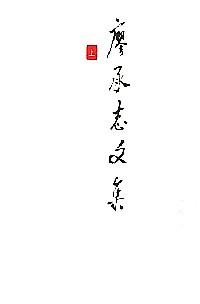 廖承志文集
上